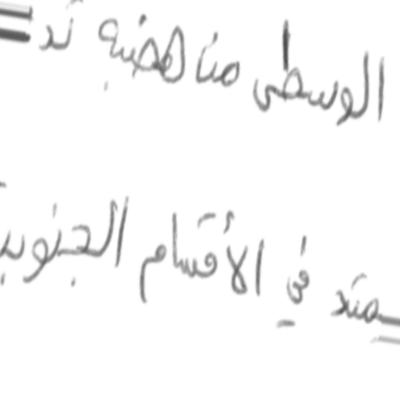 الوسطى منا لهضبه تد =
= متد في الأقسام الجنوبيـ